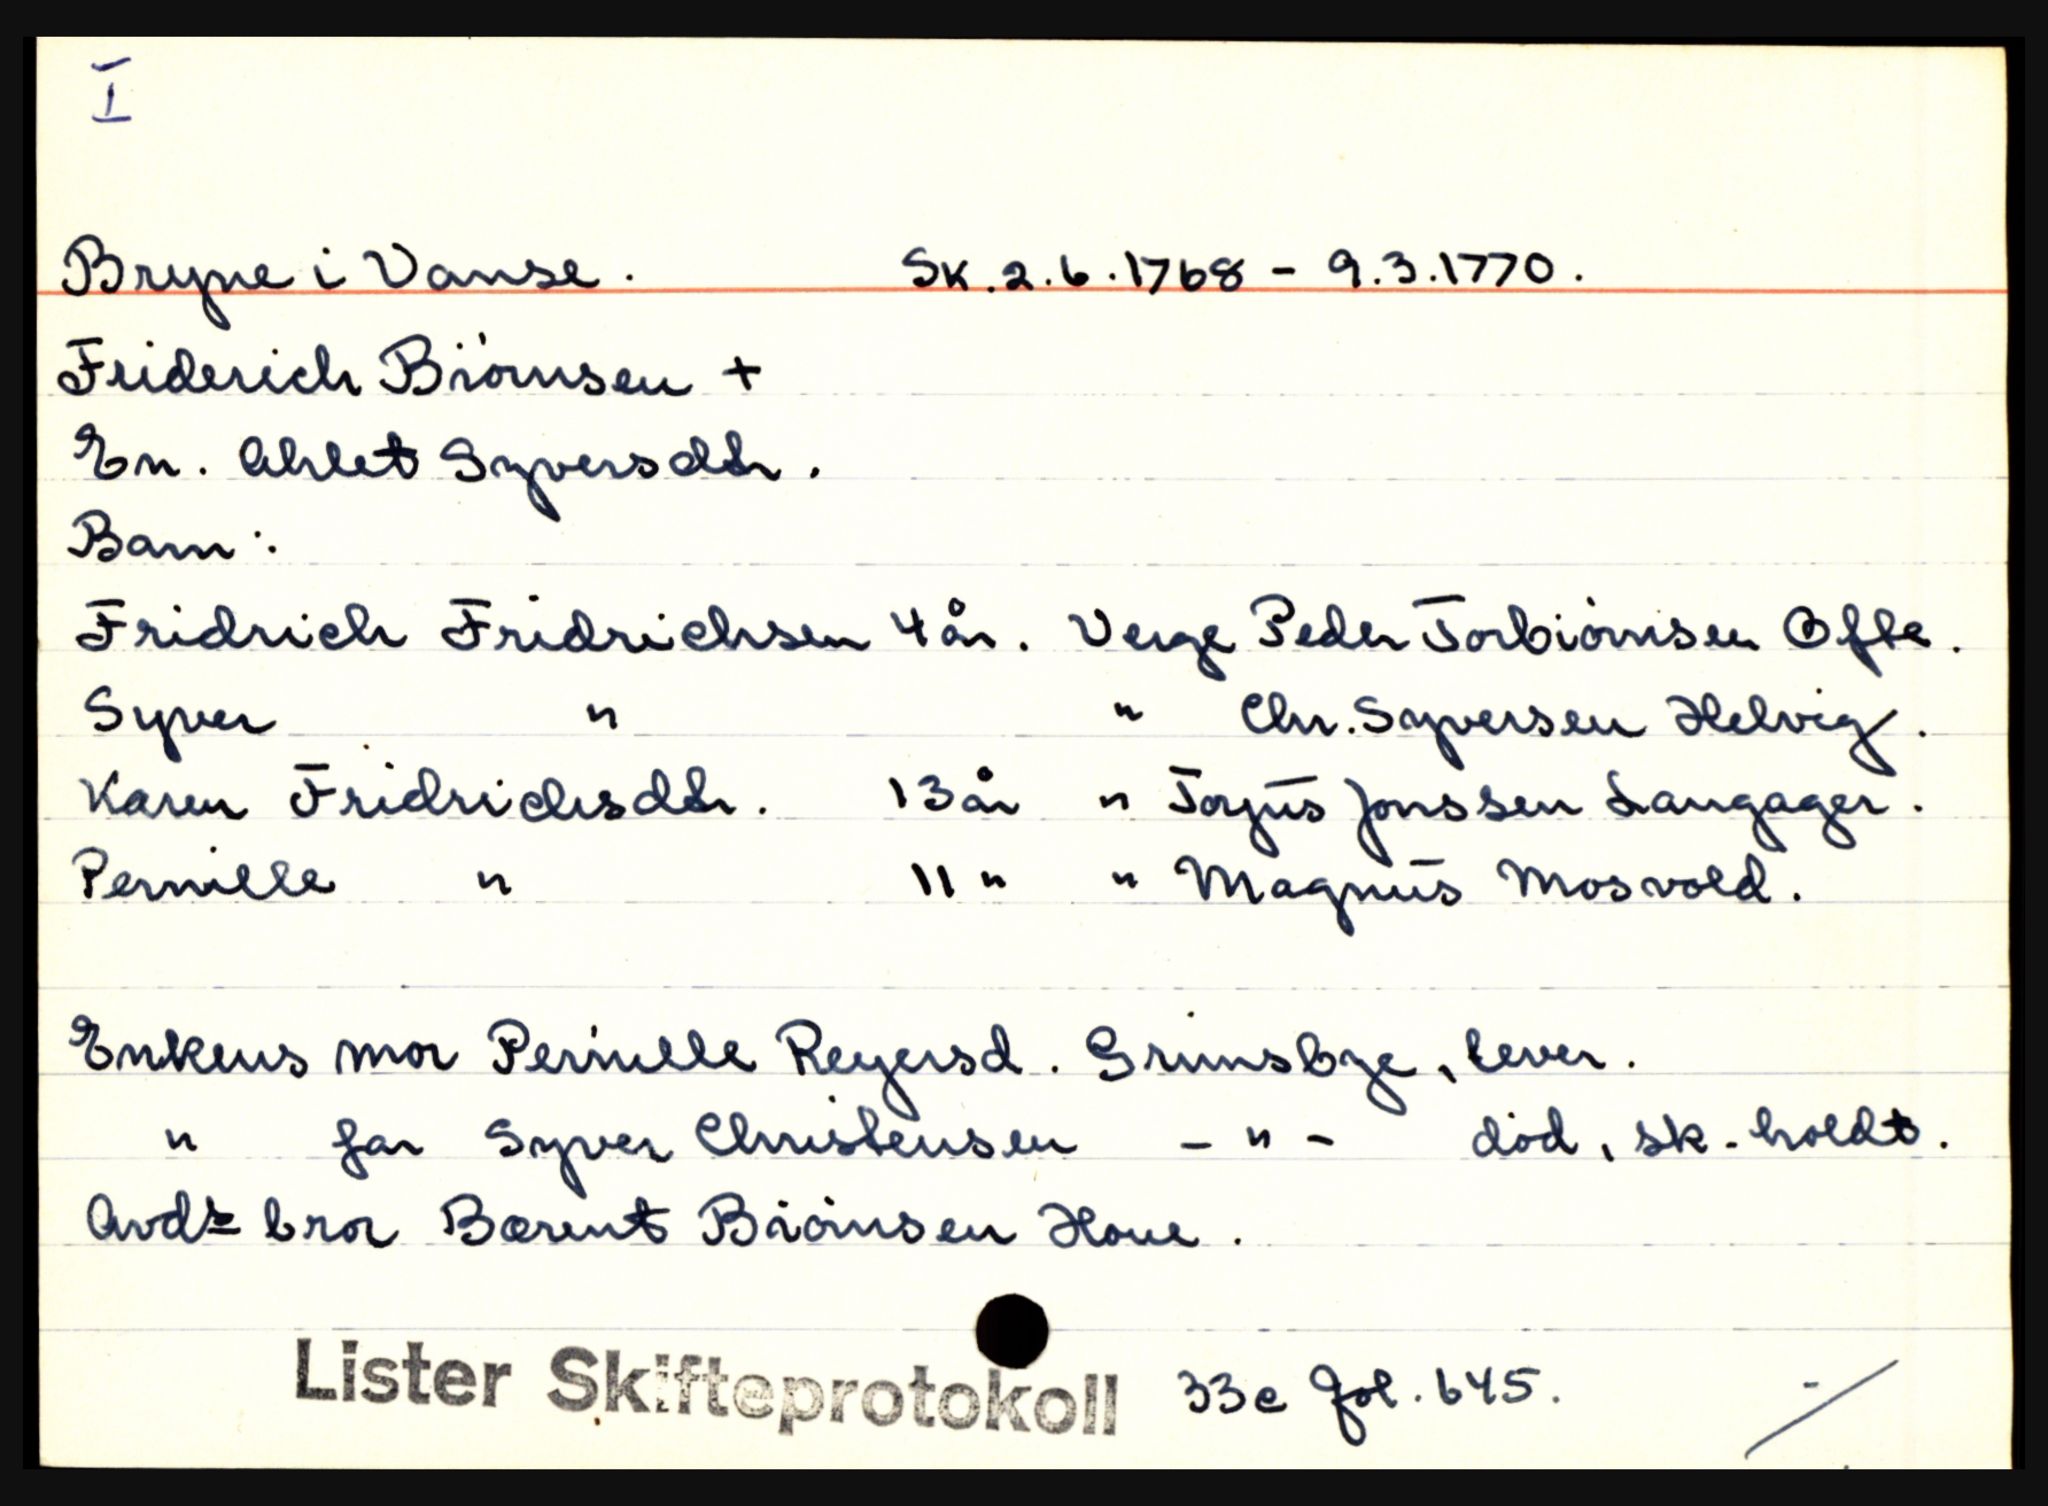 I
Bryne i Vanse. Sk. 2.6.1768 - 9.3.1770.
Friderich Biørnsen +
En. Ahlet Syversdtr.
Barn:
Fridrich Fridrichsen 4 år. Verge Peder Torbiørnsen Ofte.
Syver " " Chr. Syversen Helvig.
Karen Fridrichsdtr. 13 år " Torjus Jonssen Langager.
Pernille " 11 " " Magnus Mosvold.
Enkens mor Pernille Reyersd. Grimsbye, lever.
" far Syver Christensen - " - død, sk. holdt.
Avds bror Bærent Biørnsen Houe.
Lister Skifteprotokoll 33c fol. 645.